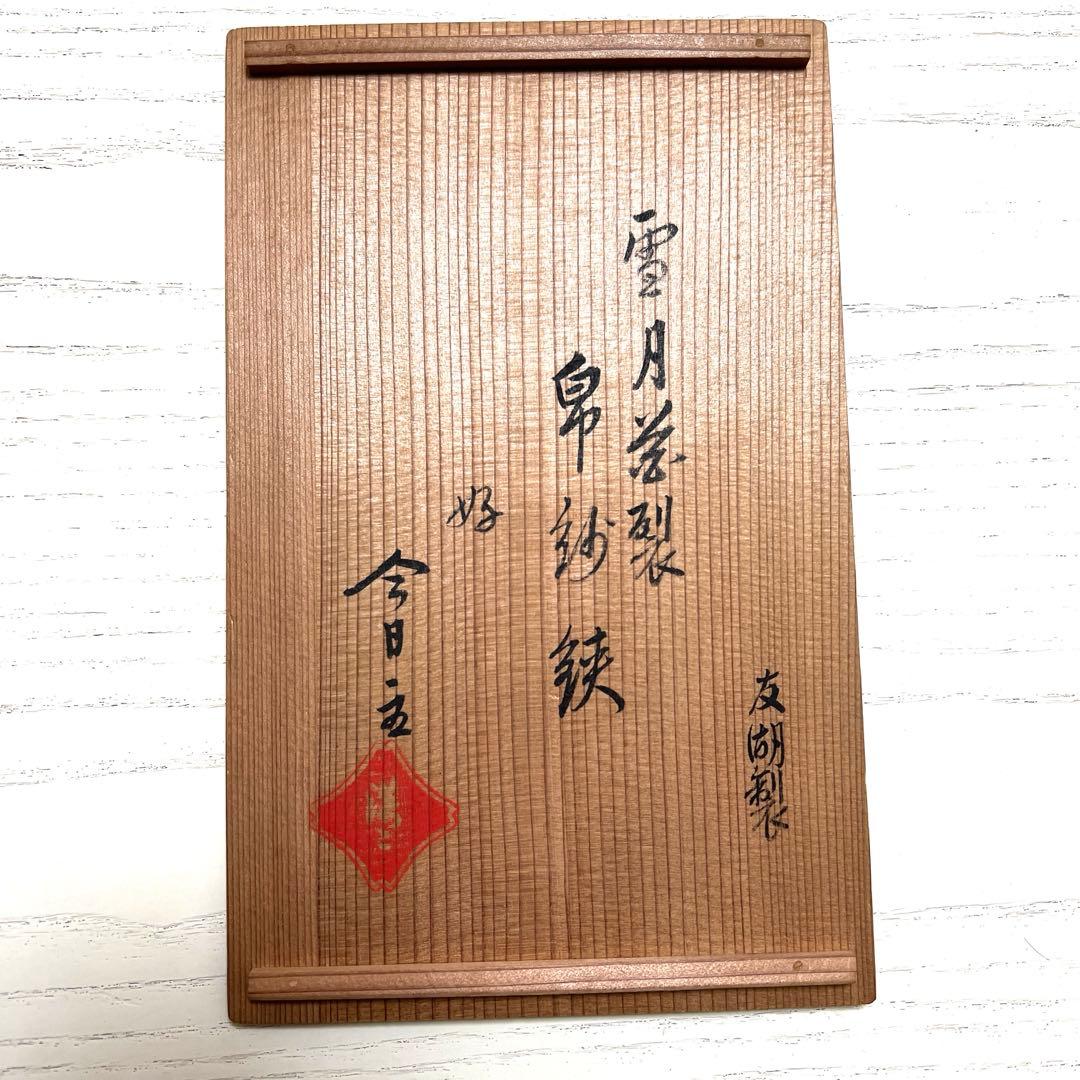 友湖製
雪月花裂
帛紗鋏
好
今日主